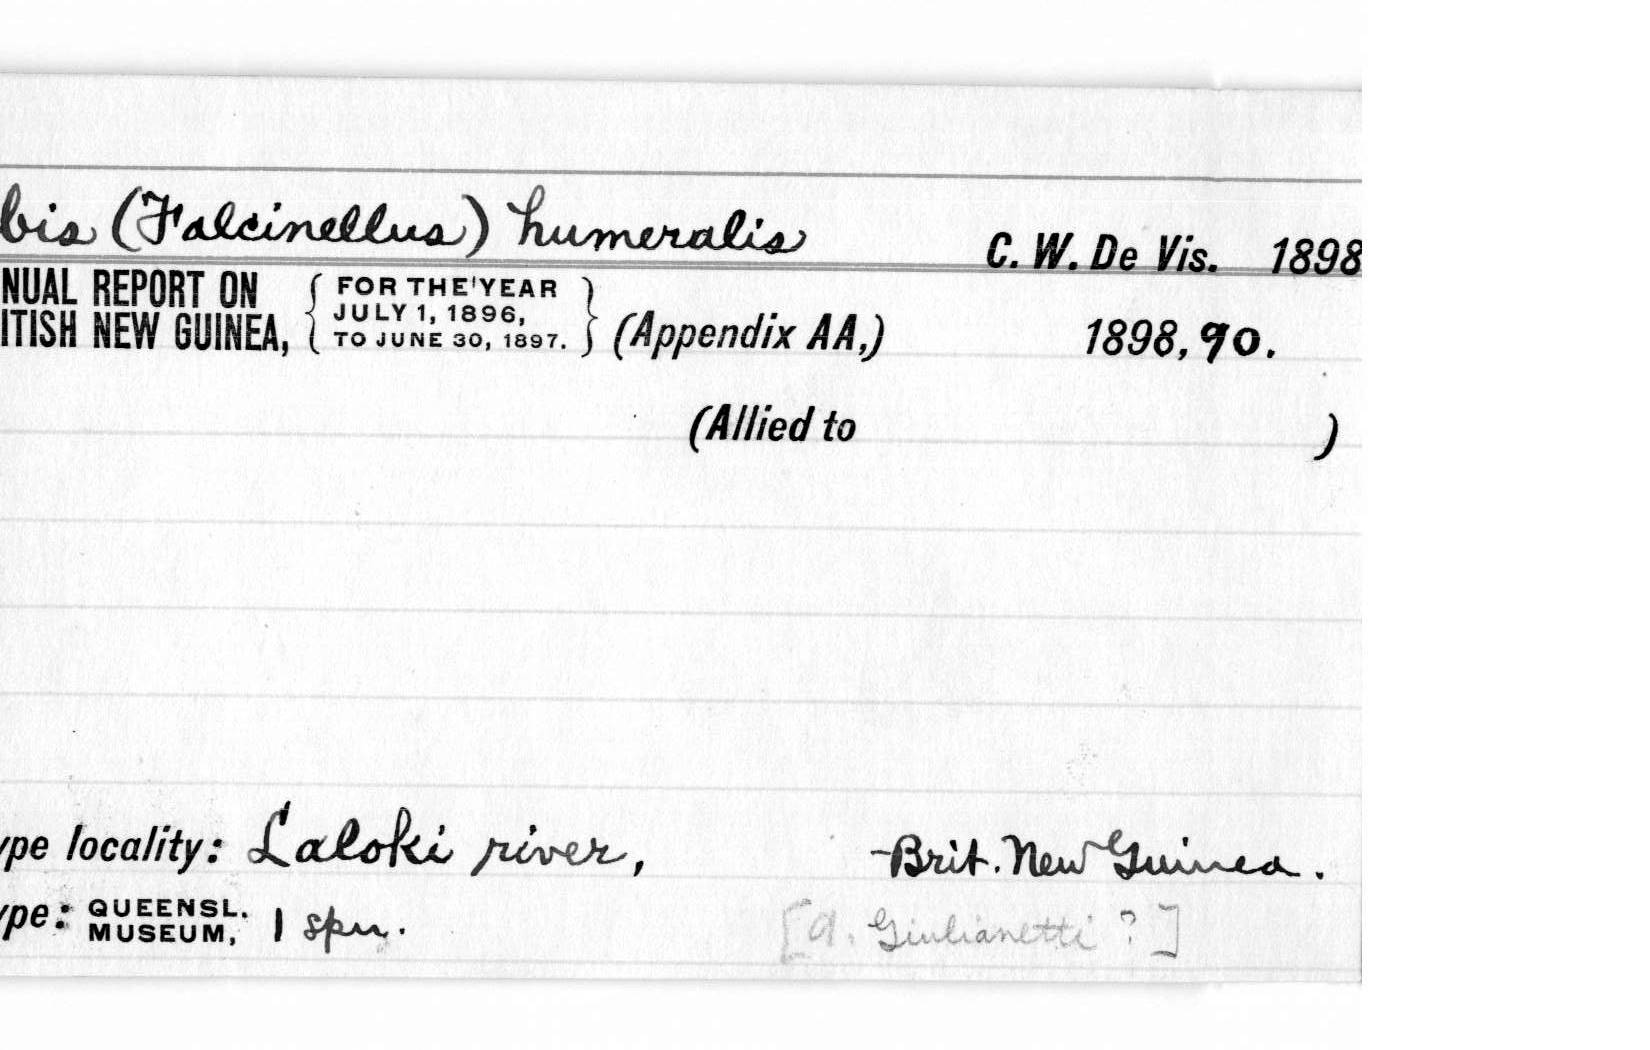 bis (Falcinellus) humeralis C. W. De Vis. 1898
NUAL REPORT ON { FOR THE YEAR
ITISH NEW GUINEA, JULY 1, 1896, } (Appendix AA,) 1898, 90.
TO JUNE 30, 1897.
(Allied to )
ype locality: Laloki river, Brit. New Guinea.
ype: QUEENSL. MUSEUM, 1 spn. [A. Giulianetti ?]